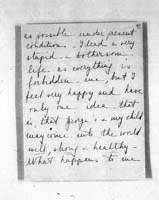 as possible under present
conditions - I lead a very
stupid & bothersome
life as everything is
forbidden me, but I
feel very happy and have
only one idea that
is that George's & my child
may come into the world
well, strong & healthy -
What happens to me